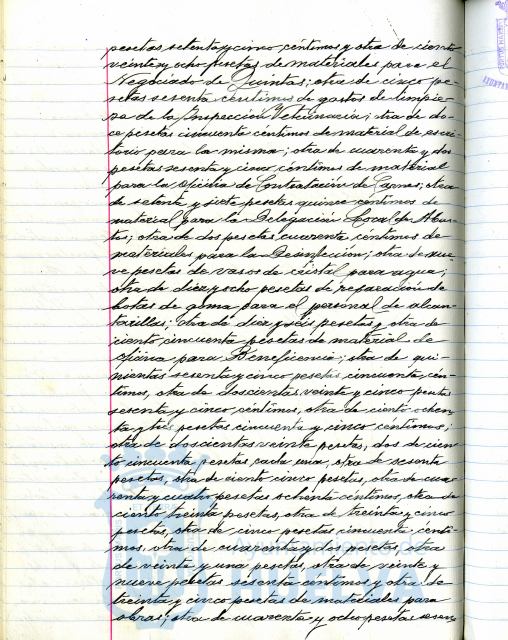 pesetas setenta y cinco céntimos y otra de ciento
veinte y ocho pesetas de materiales para el
Negociado de Quintas; otra de cinco pe-
setas sesenta céntimos de gastos de limpie-
za de la Inspección Veterinaria; otra de do-
ce pesetas cincuenta céntimos de material de escri-
torio para la misma; otra de cuarenta y dos
pesetas sesenta y cinco céntimos de material
para la oficina de Contratación de Carnes; otra
de setenta y siete pesetas quince céntimos de
material para la Delegación Local de Abas-
tos; otra de dos pesetas cuarenta céntimos de
materiales para la Desinfección; otra de nue-
ve pesetas de vasos de cristal para agua;
otra de diez y ocho pesetas de reparación de
botas de goma para el personal de alcan-
tarillas; otra de diez y seis pesetas y otra de
ciento cincuenta pesetas de material de
oficina para Beneficencia; otra de qui-
nientas sesenta y cinco pesetas cincuenta cén-
timos, otra de doscientas veinte y cinco pesetas
sesenta y cinco céntimos, otra de ciento ochen
ta y tres pesetas cincuenta y cinco céntimos;
otra de doscientas veinte pesetas, dos de cien-
to cincuenta pesetas cada una, otra de sesenta
pesetas, otra de ciento cinco pesetas, otra de cua
renta y cuatro pesetas ochenta céntimos, otra de
ciento treinta pesetas, otra de treinta y cinco
pesetas, otra de cinco pesetas cincuenta cénti-
mos, otra de cuarenta y dos pesetas, otra
de veinte y una pesetas, otra de veinte y
nueve pesetas sesenta céntimos y otra de
treinta y cinco pesetas de materiales para
obras; otra de cuarenta y ocho pesetas
Ayuntamiento de
HUELVA